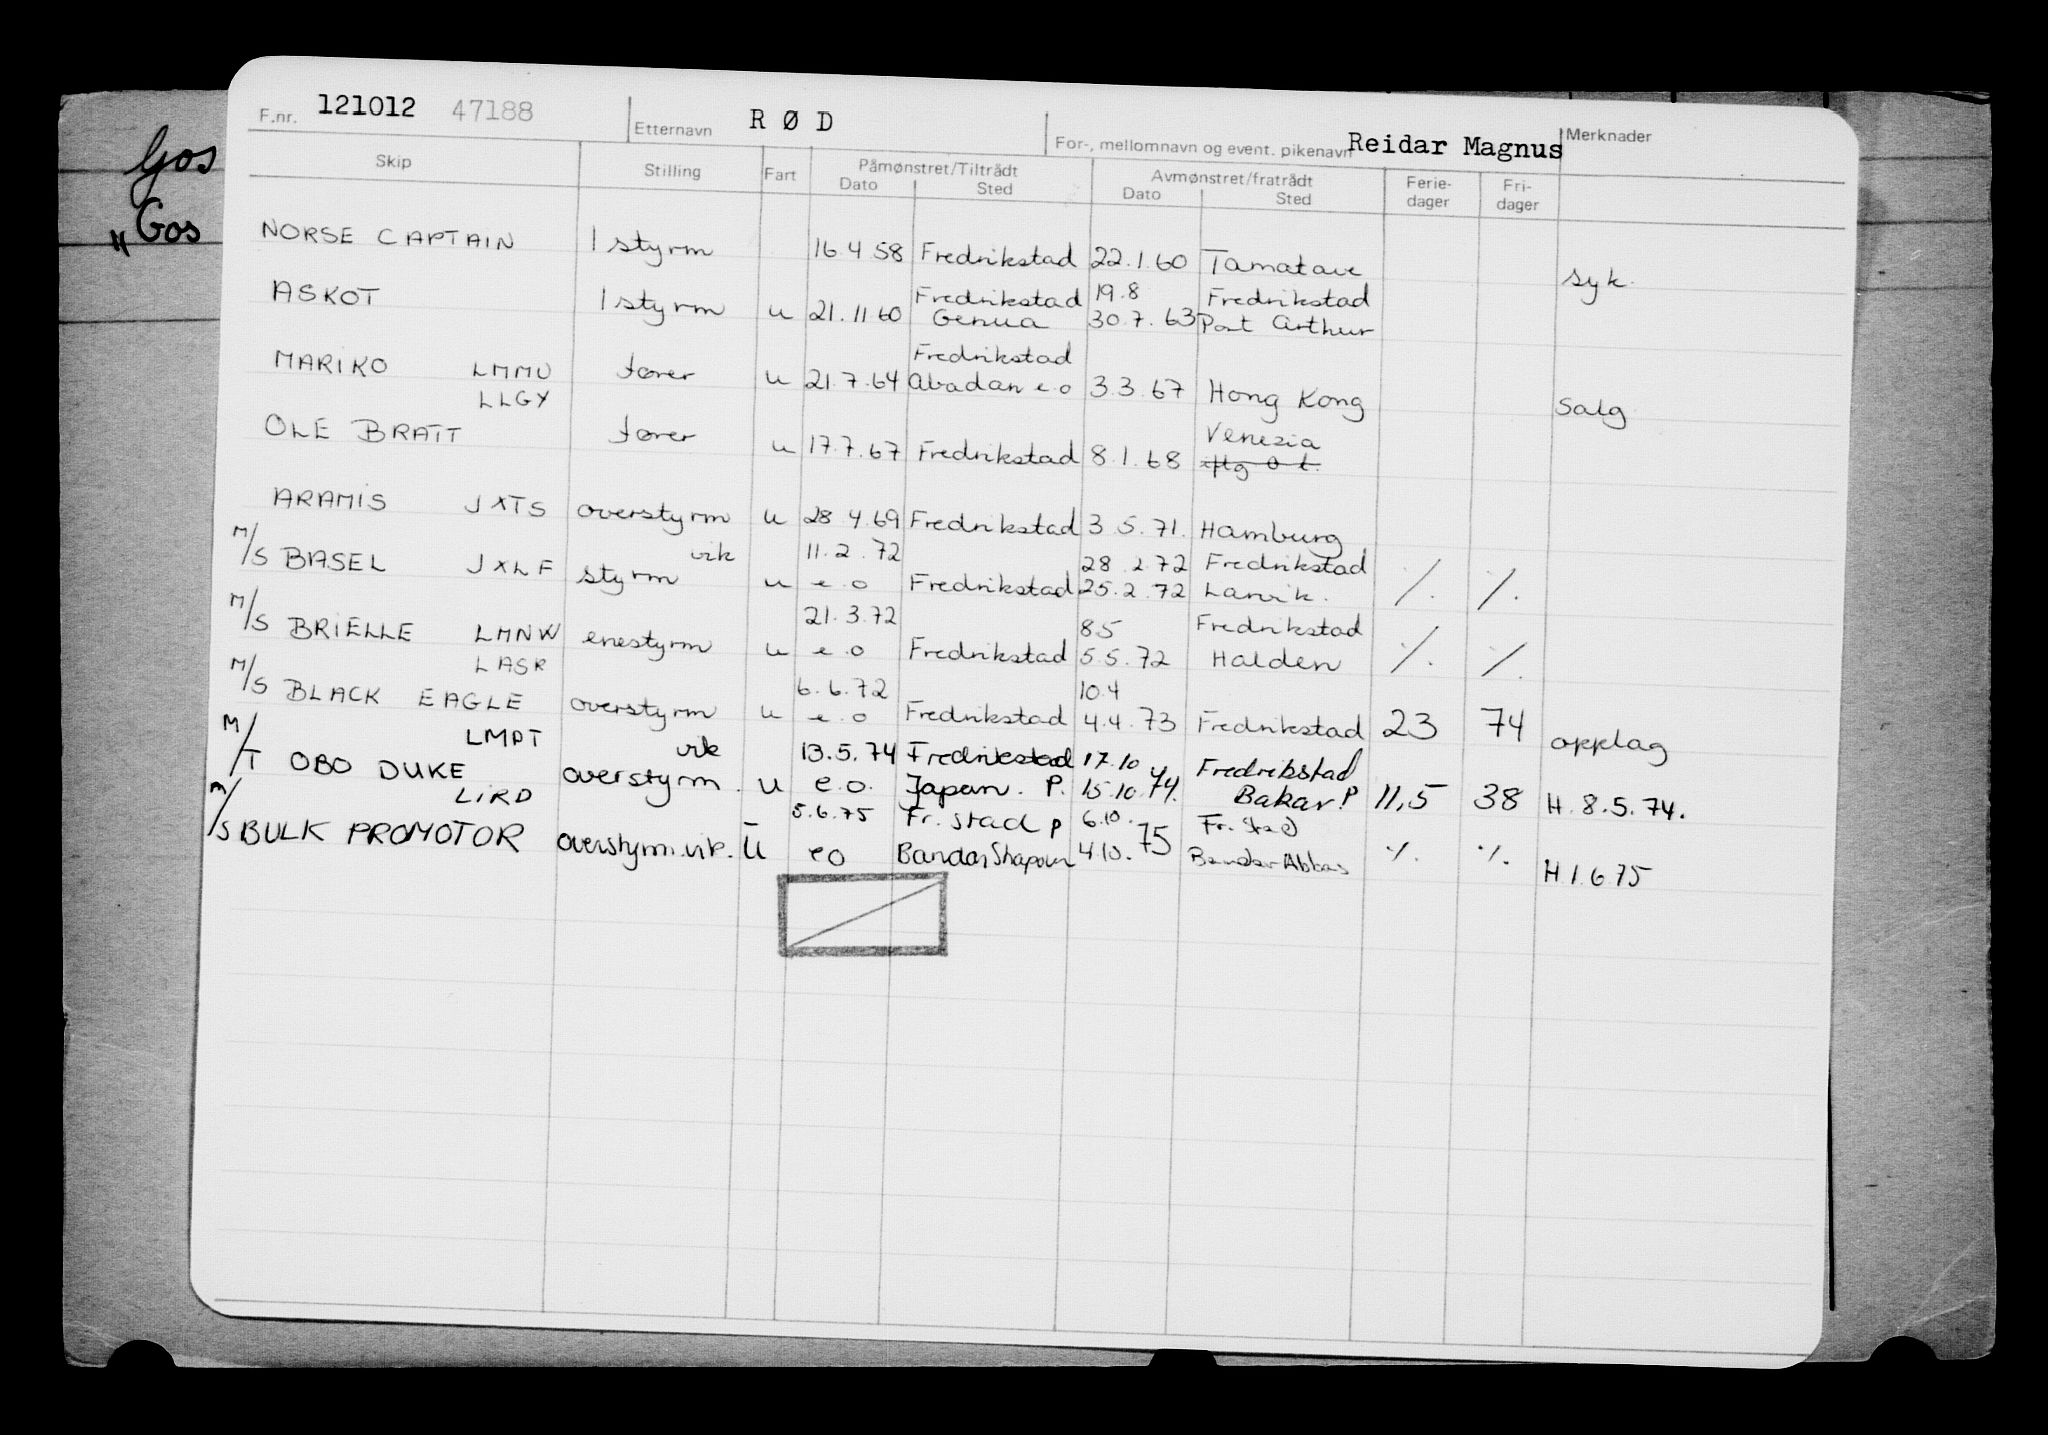 Gos
"Gos
F.nr. 121012 47188 Etternavn R Ø D For-, mellomnavn og event. pikenavn Reidar Magnus Merknader
Skip Stilling Fart Påmønstret/Tiltrådt Avmønstret/fratrådt Ferie- Fri-
Dato Sted Dato Sted dager dager
NORSE CAPTAIN 1 styrm 16.4 58 Fredrikstad 22.1.60 Tamatave syk.
Fredrikstad 19.8 Fredrikstad
ASKOT 1 styrm u 21.11 60 Genua 30.7.63 Port Arthur
Fredrikstad
MARIKO LMMU fører u 21.7.64 Abadan e.o 3.3.67 Hong Kong Salg
LLGY Venezia
OLE BRATT fører u 17.7.67 Fredrikstad 8.1.68
ARAMIS JXTS overstyrm u 28.4.69 Fredrikstad 3.5.71. Hamburg
vik 11.2.72 28.2.72 Fredrikstad
M/S BASEL JXLF styrm u e.o Fredrikstad 25.2.72 Larvik. /. /.
21.3.72 8.5 Fredrikstad
M/S BRIELLE LMNW enestyrm u e.o Fredrikstad 5.5.72 Halden /. /.
LASR 6.6.72 10.4
M/S BLACK EAGLE overstyrm u e.o Fredrikstad 4.4.73 Fredrikstad 23 74 opplag
LMPT vik 13.5.74 Fredrikstad 17.10 Fredrikstad
M/T OBO DUKE overstyrm. u e.o. Japan. P. 15.10.74. Bakar P 11,5 38 H. 8.5.74.
LIRD 5.6.75 Fr. stad P 6.10. Fr. Stad
M/S BULK PROMOTOR overstyrm.vik. U eo Bandar Shapour 4.10.75 Bandar Abbas /. /. H.1.6 75